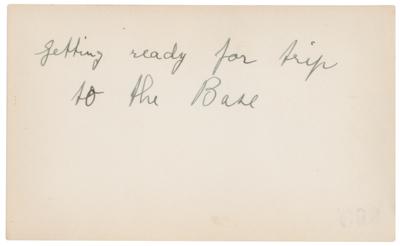 getting ready for trip
to the Base